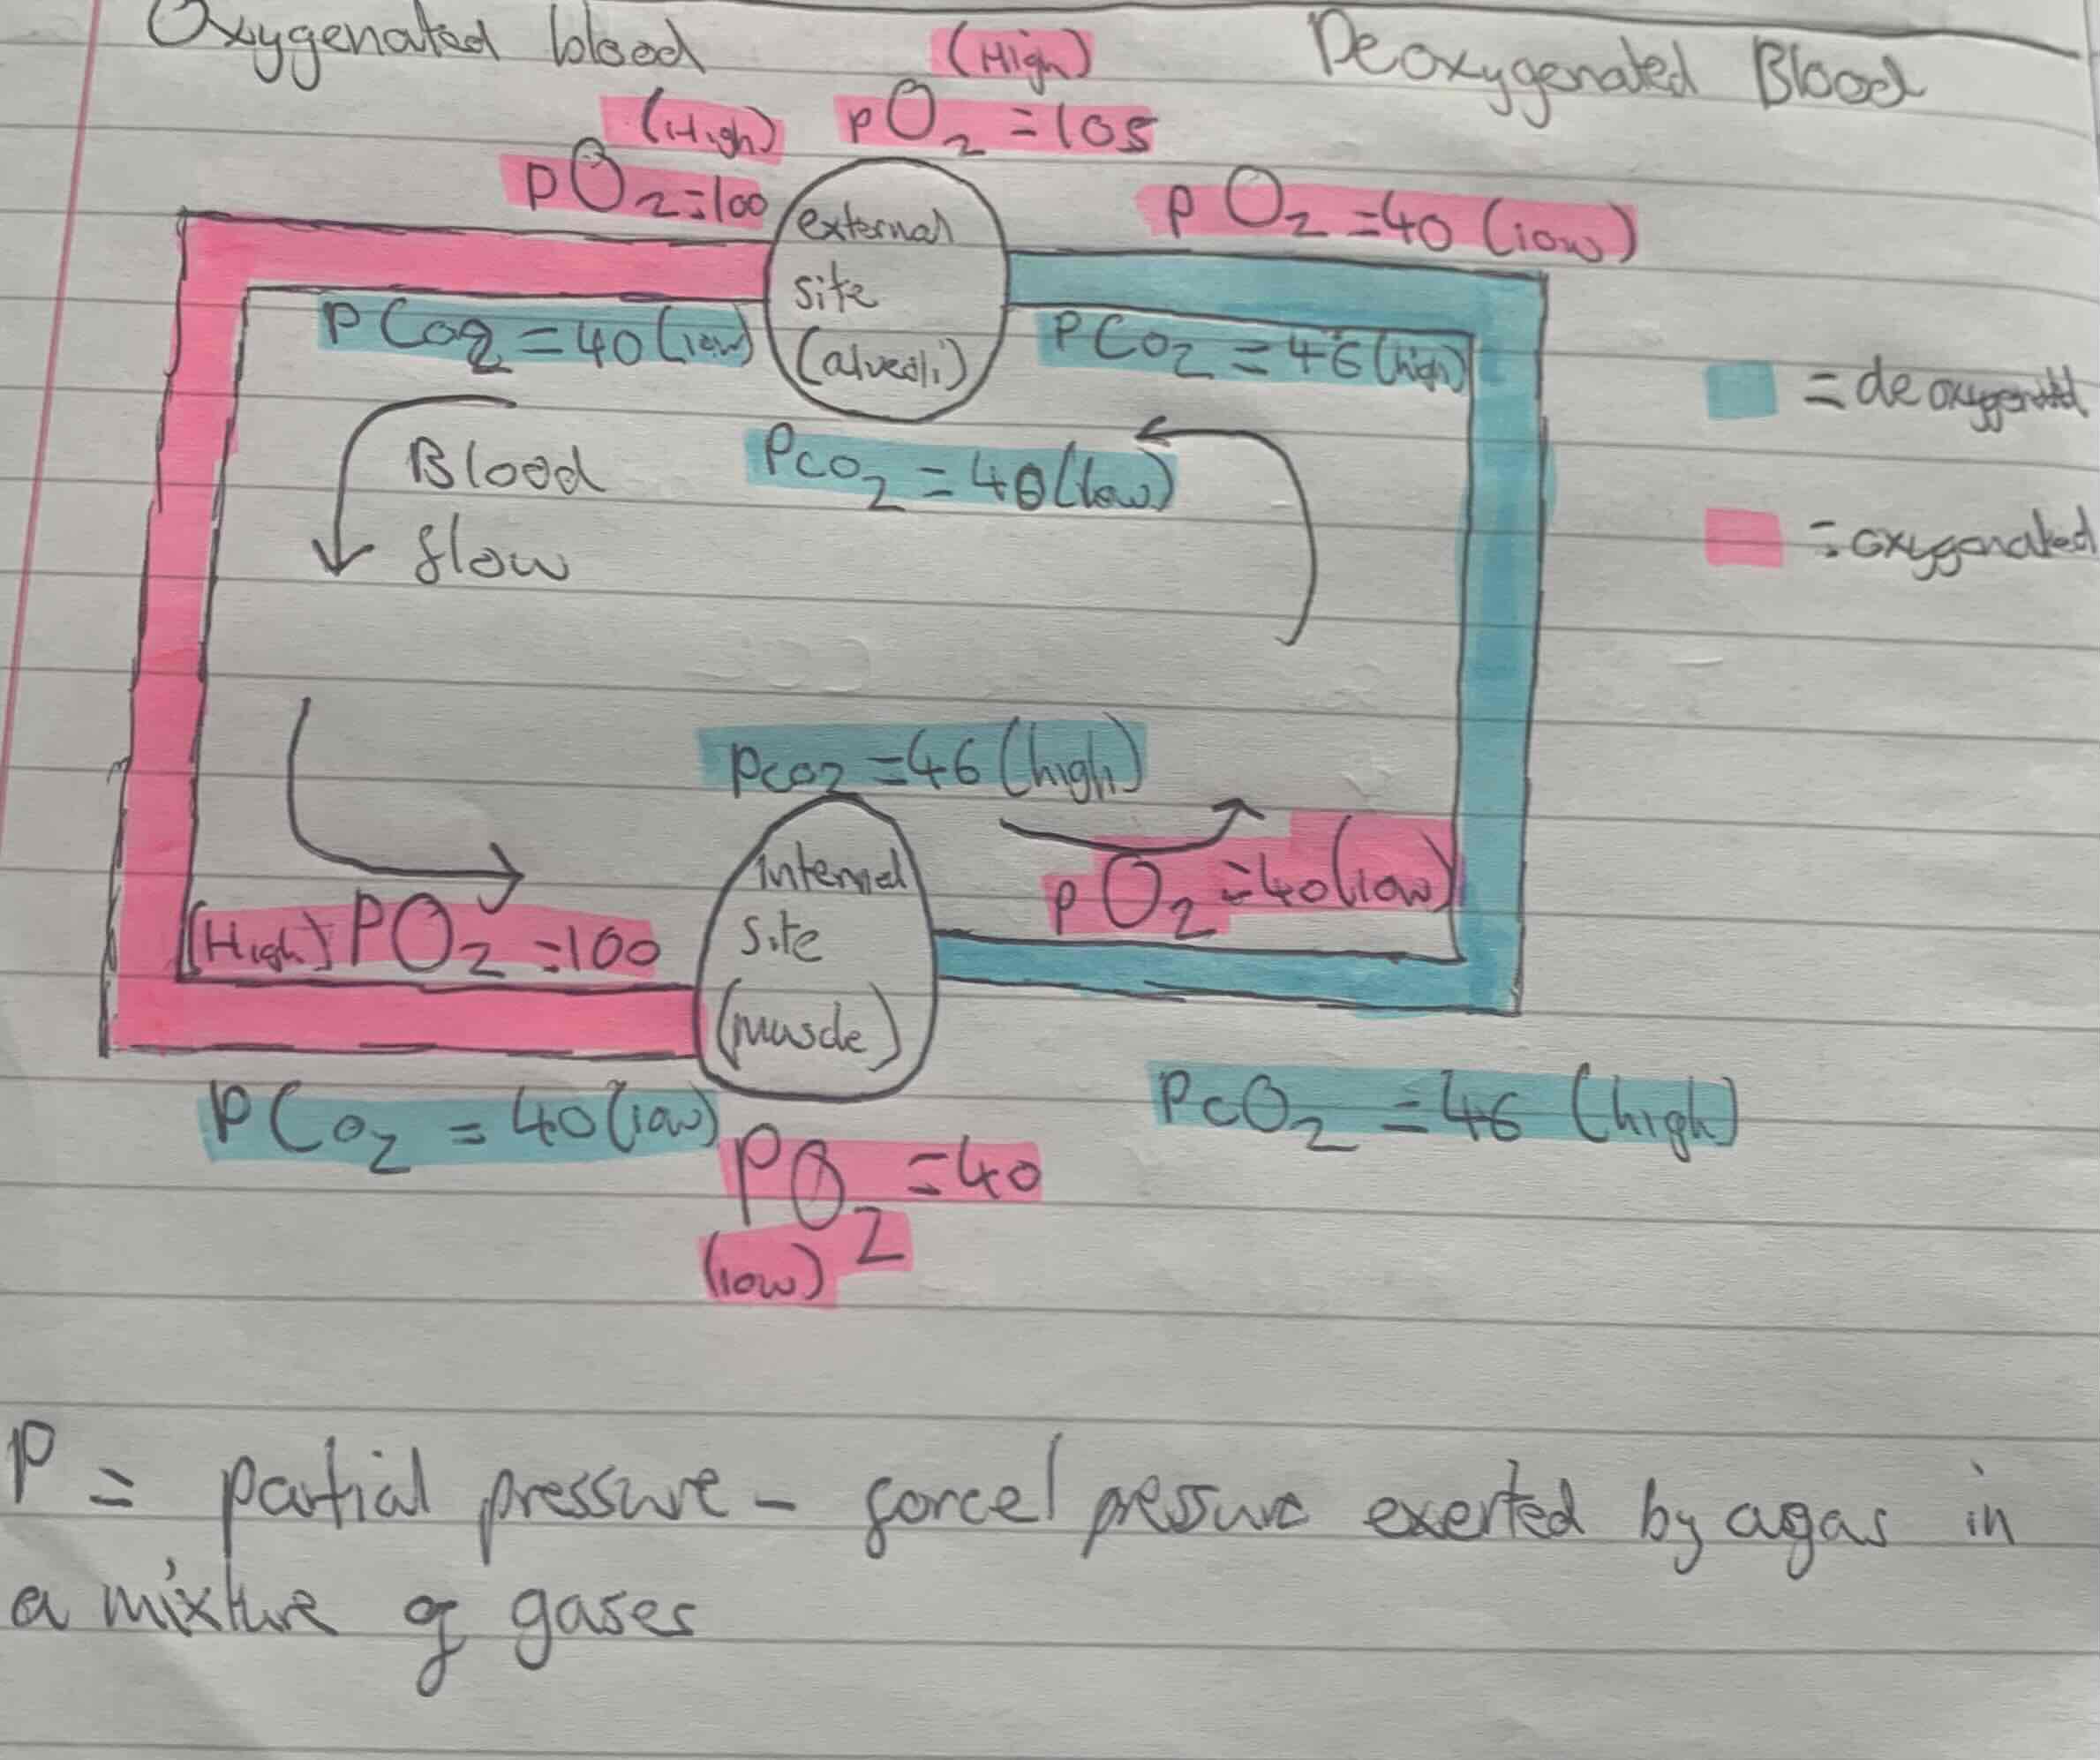 Oxygenated blood
Deoxygenated Blood
(High)
pO2 = 105
(High)
pO2 = 100
pO2 = 40 (low)
external
site
(alveoli)
PCO2 = 40 (low)
PCO2 = 46 (high)
= deoxygenated
= oxygenated
PCO2 = 40 (low)
Blood
flow
PCO2 = 46 (high)
internal
site
(muscle)
pO2 = 40 (low)
(High) PO2 = 100
PCO2 = 40 (low)
PCO2 = 46 (high)
PO2 = 40
(low)
P = partial pressure - force/pressure exerted by a gas in
a mixture of gases